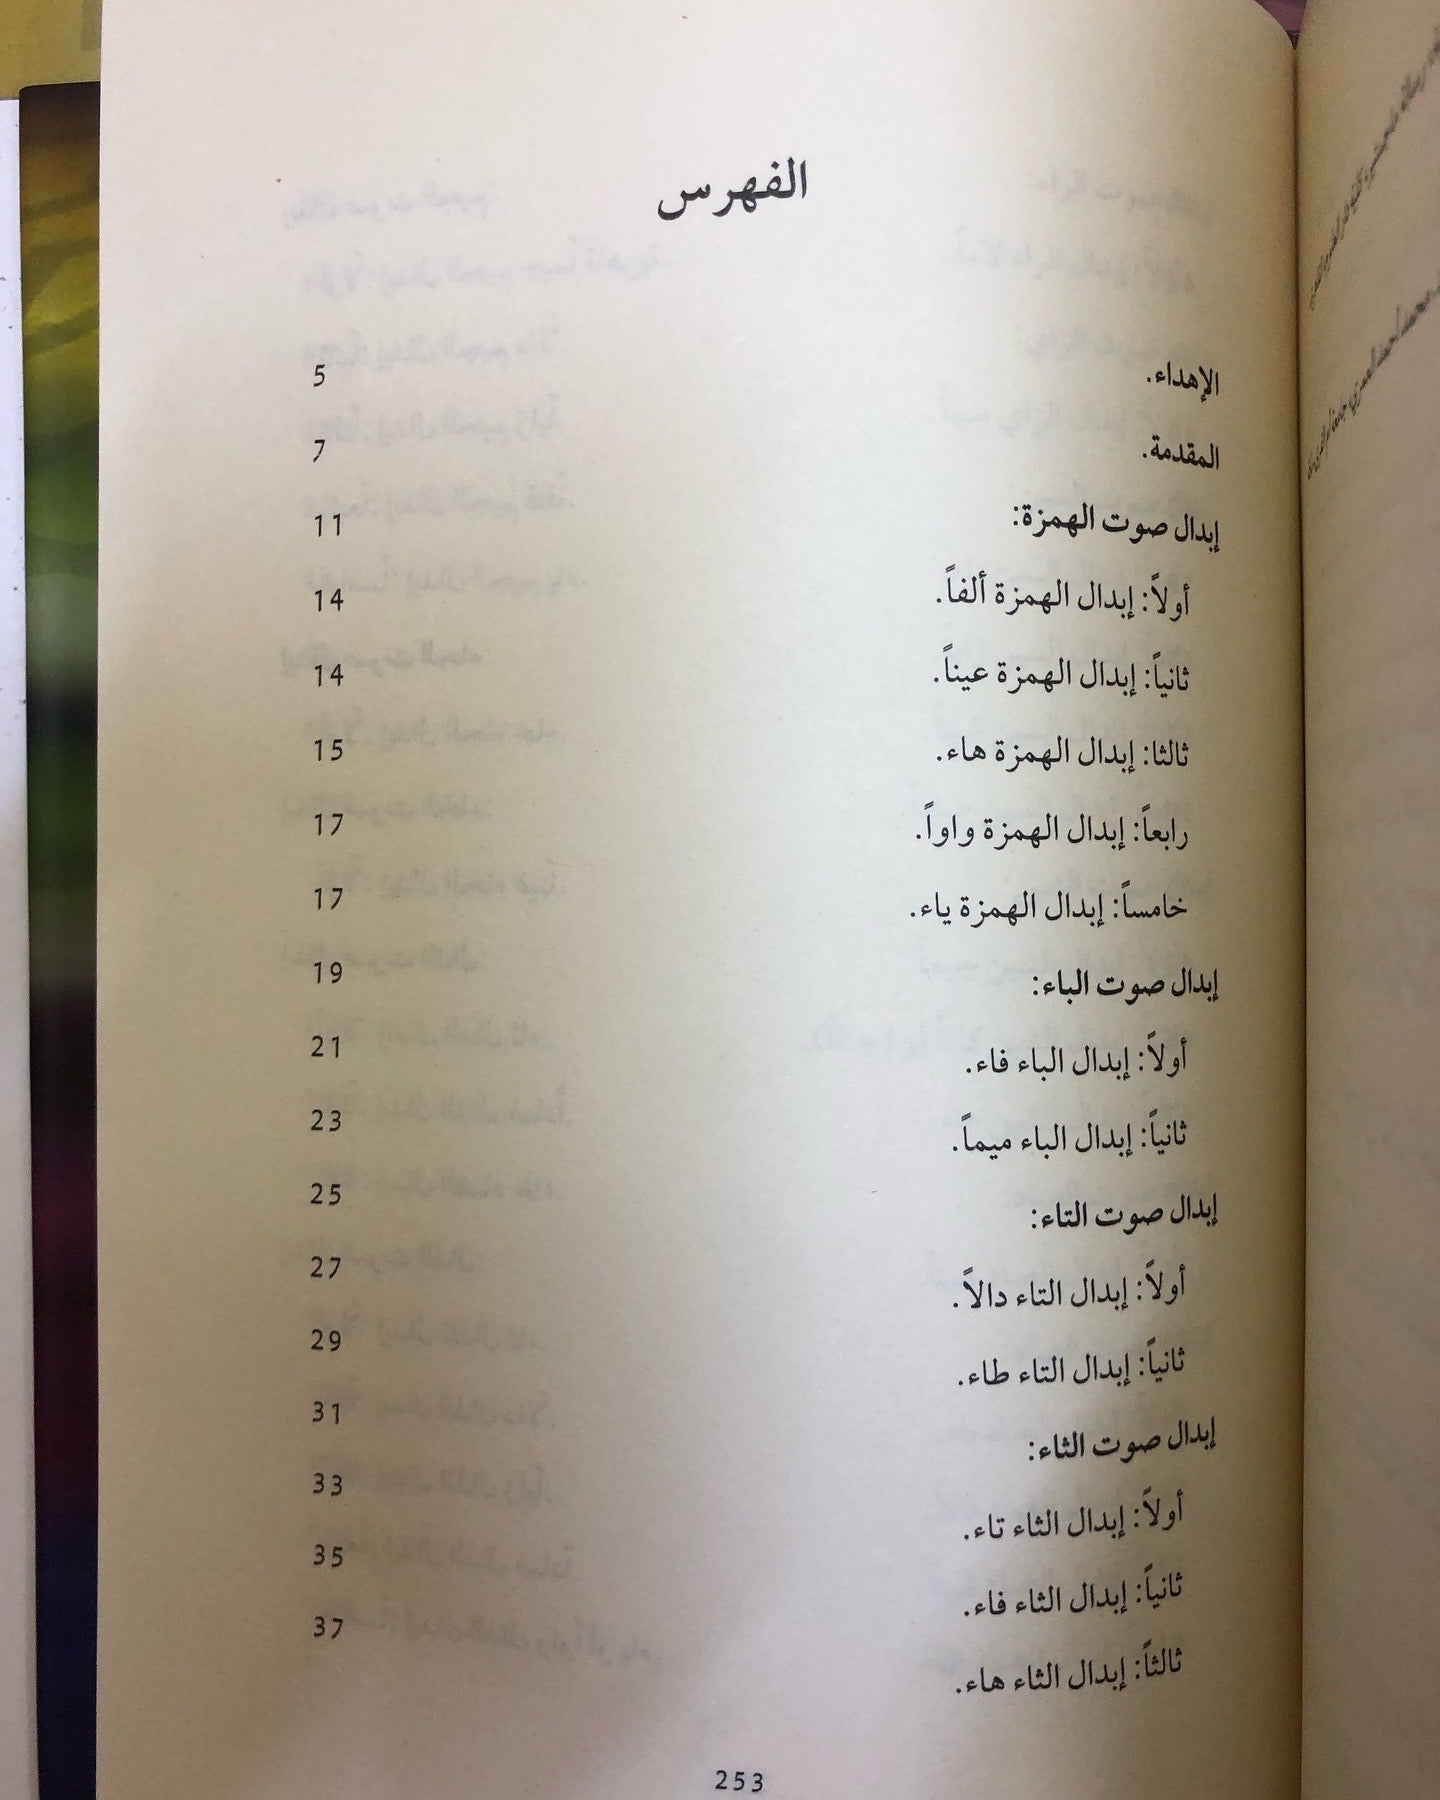 الفهرس
الإهداء. 5
المقدمة. 7
إبدال صوت الهمزة: 11
أولاً: إبدال الهمزة ألفاً. 14
ثانياً: إبدال الهمزة عيناً. 14
ثالثا: إبدال الهمزة هاء. 15
رابعاً: إبدال الهمزة واواً. 17
خامساً: إبدال الهمزة ياء. 17
إبدال صوت الباء: 19
أولاً: إبدال الباء فاء. 21
ثانياً: إبدال الباء ميماً. 23
إبدال صوت التاء: 25
أولاً: إبدال التاء دالاً. 27
ثانياً: إبدال التاء طاء. 29
إبدال صوت الثاء: 31
أولاً: إبدال الثاء تاء. 33
ثانياً: إبدال الثاء فاء. 35
ثالثاً: إبدال الثاء هاء. 37
253